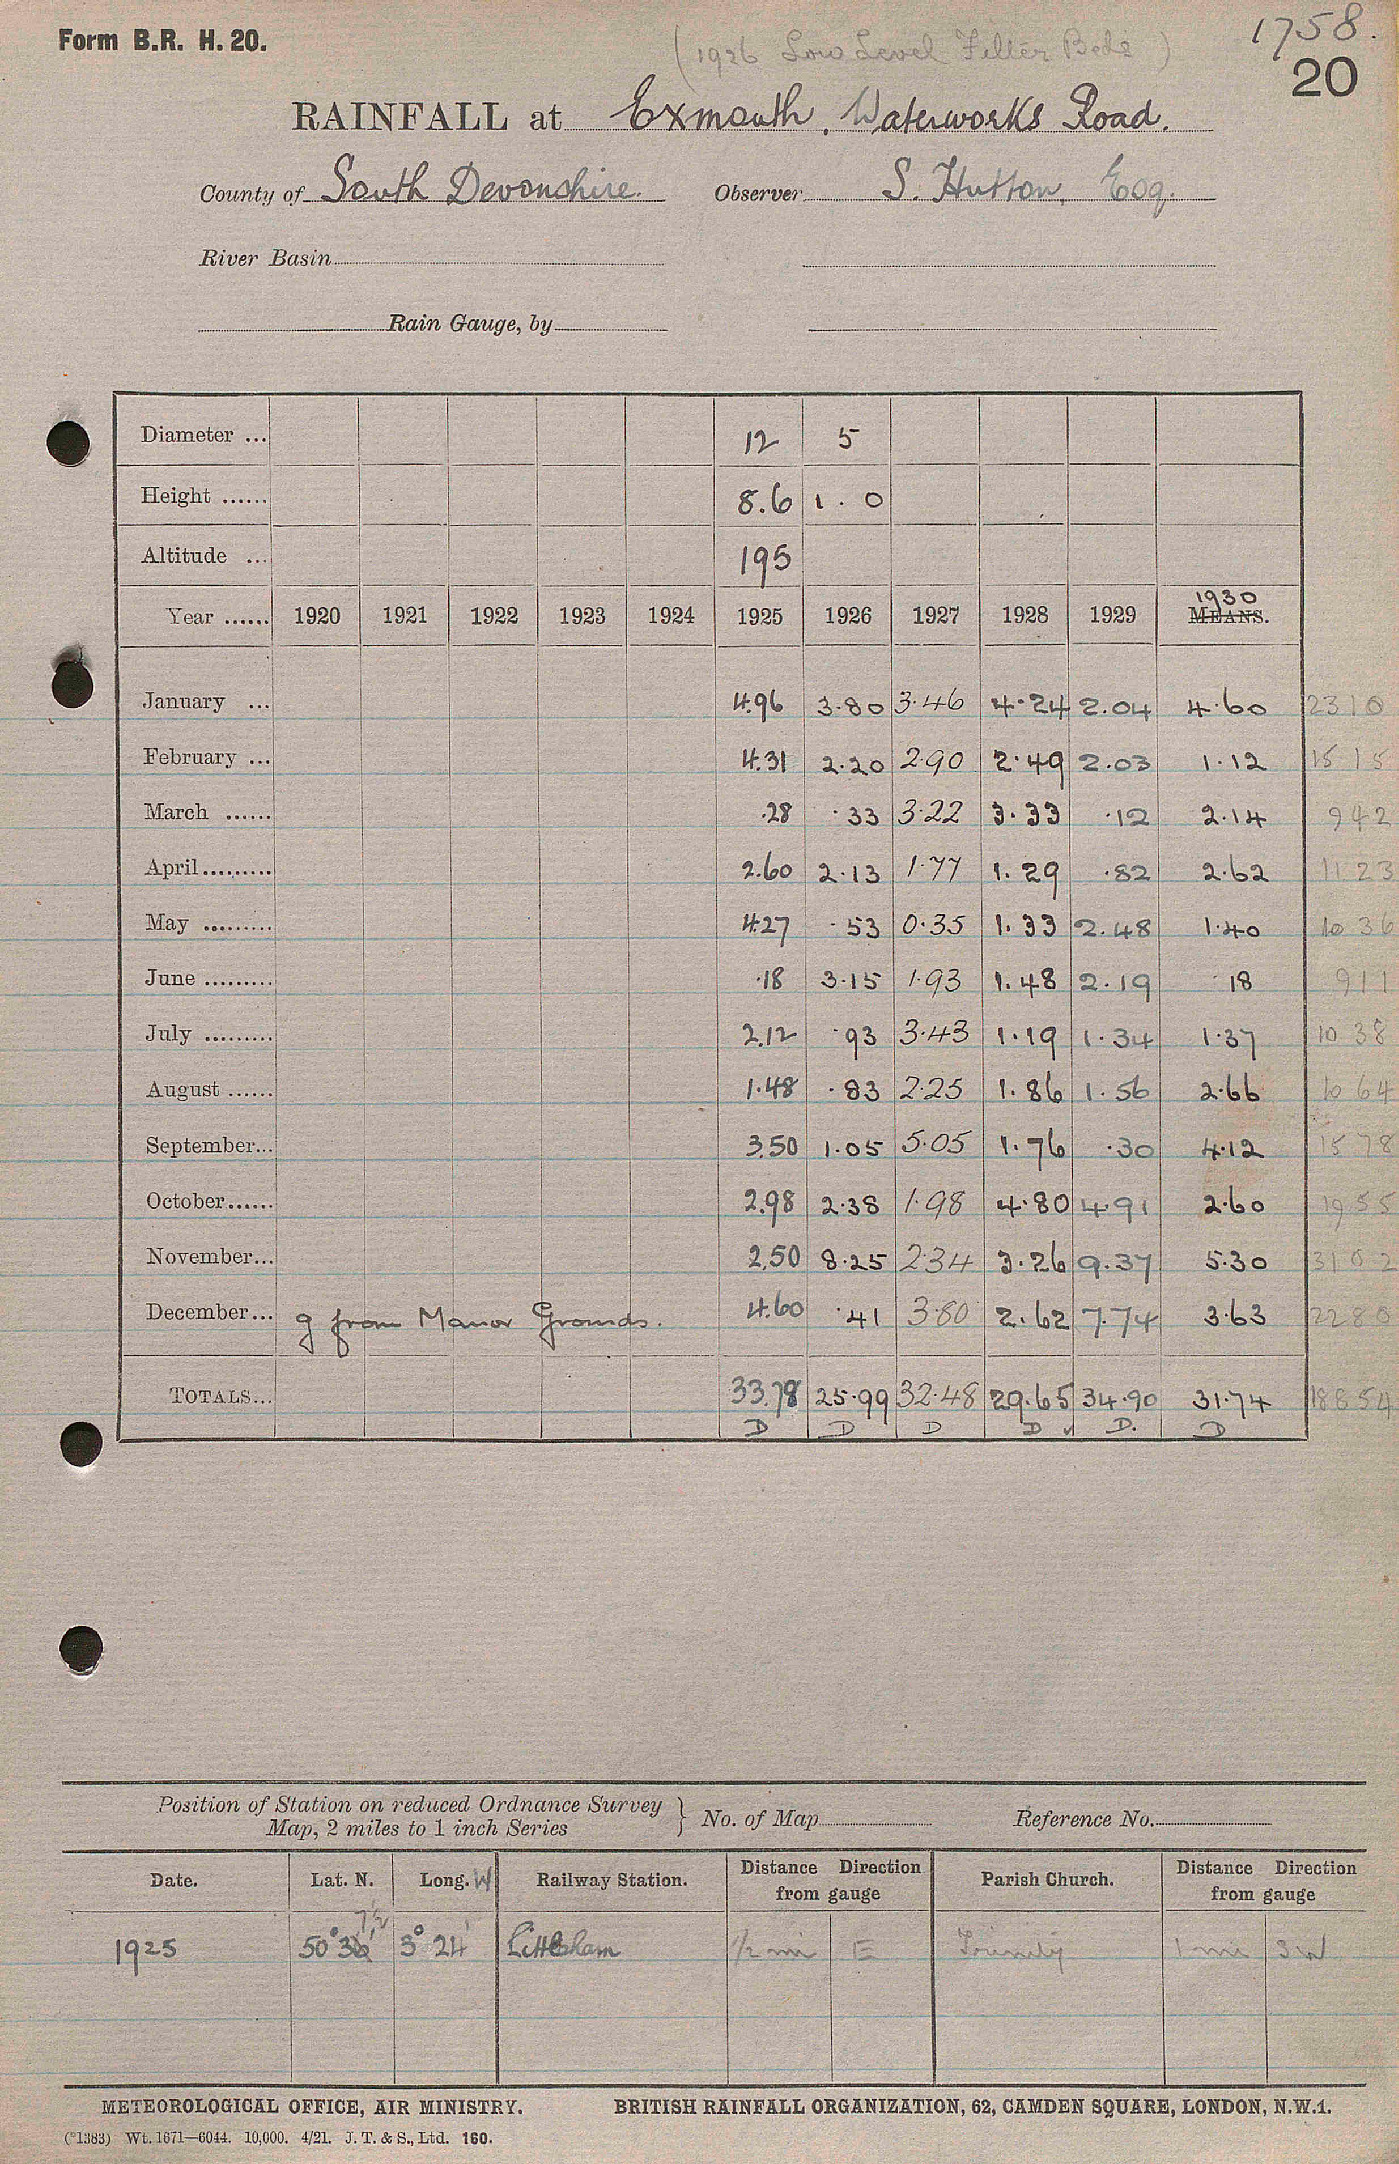 Form B.R. H. 20.
(1926 Low Level Filter Beds)
1758.
20
RAINFALL at Exmouth, Waterworks Road.
County of South Devonshire. Observer S. Hutton, Esq.
River Basin
Rain Gauge, by
Diameter ... 12 5
Height ...... 8.6 1.0
Altitude ... 195
Year ...... 1920 1921 1922 1923 1924 1925 1926 1927 1928 1929 1930 MEANS.
January ... 4.96 3.80 3.46 4.24 2.04 4.60 2310
February ... 4.31 2.20 2.90 2.49 2.03 1.12 1515
March ...... .28 .33 3.22 3.33 .12 2.14 942
April ......... 2.60 2.13 1.77 1.29 .82 2.62 1123
May ......... 4.27 .53 0.35 1.33 2.48 1.40 1036
June ......... .18 3.15 1.93 1.48 2.19 .18 911
July ......... 2.12 .93 3.43 1.19 1.34 1.37 1038
August ...... 1.48 .83 2.25 1.86 1.56 2.66 1064
September... 3.50 1.05 5.05 1.76 .30 4.12 1578
October...... 2.98 2.38 1.98 4.80 4.91 2.60 1955
November... 2.50 8.25 2.34 3.26 9.37 5.30 3102
December... g from Manor Grounds. 4.60 .41 3.80 2.62 7.74 3.63 2280
TOTALS... 33.78 25.99 32.48 29.65 34.90 31.74 18854
D D D D ✓ D. D
Position of Station on reduced Ordnance Survey
Map, 2 miles to 1 inch Series } No. of Map Reference No.
Date. Lat. N. Long. W Railway Station. Distance Direction from gauge Parish Church. Distance Direction from gauge
1925 50°36' 3° 24' Littleham ½ mi E 1 mi SW
METEOROLOGICAL OFFICE, AIR MINISTRY. BRITISH RAINFALL ORGANIZATION, 62, CAMDEN SQUARE, LONDON, N.W.1.
(*1383) Wt. 1671—6044. 10,000. 4/21. J. T. & S., Ltd. 160.